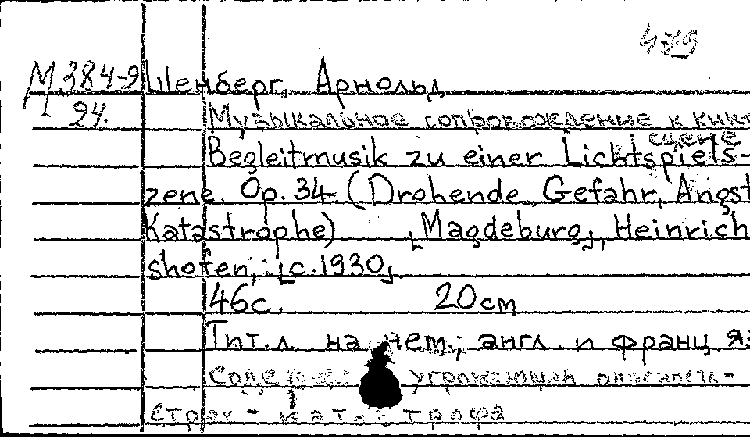 479
М384-9 Шенберг, Арнольд
24. Музыкальное сопровождение к кино
сцене
Begleitmusik zu einer Lichtspiels-
zene. Op. 34 (Drohende Gefahr, Angst
Katastrophe) [Magdeburg], Heinrich
shofen, [c. 1930]
46с. 20cm
Тит. л. на нем., англ. и франц. яз
угрожающая опасность-
страх - катастрофа